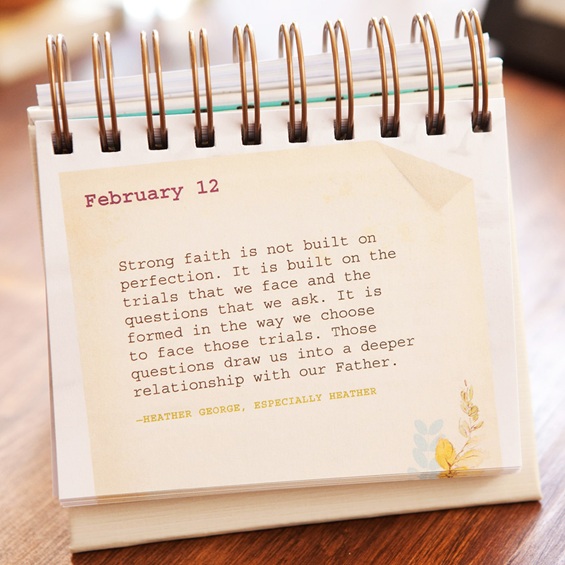 February 12
Strong faith is not built on
perfection. It is built on the
trials that we face and the
questions that we ask. It is
formed in the way we choose
to face those trials. Those
questions draw us into a deeper
relationship with our Father.
—HEATHER GEORGE, ESPECIALLY HEATHER